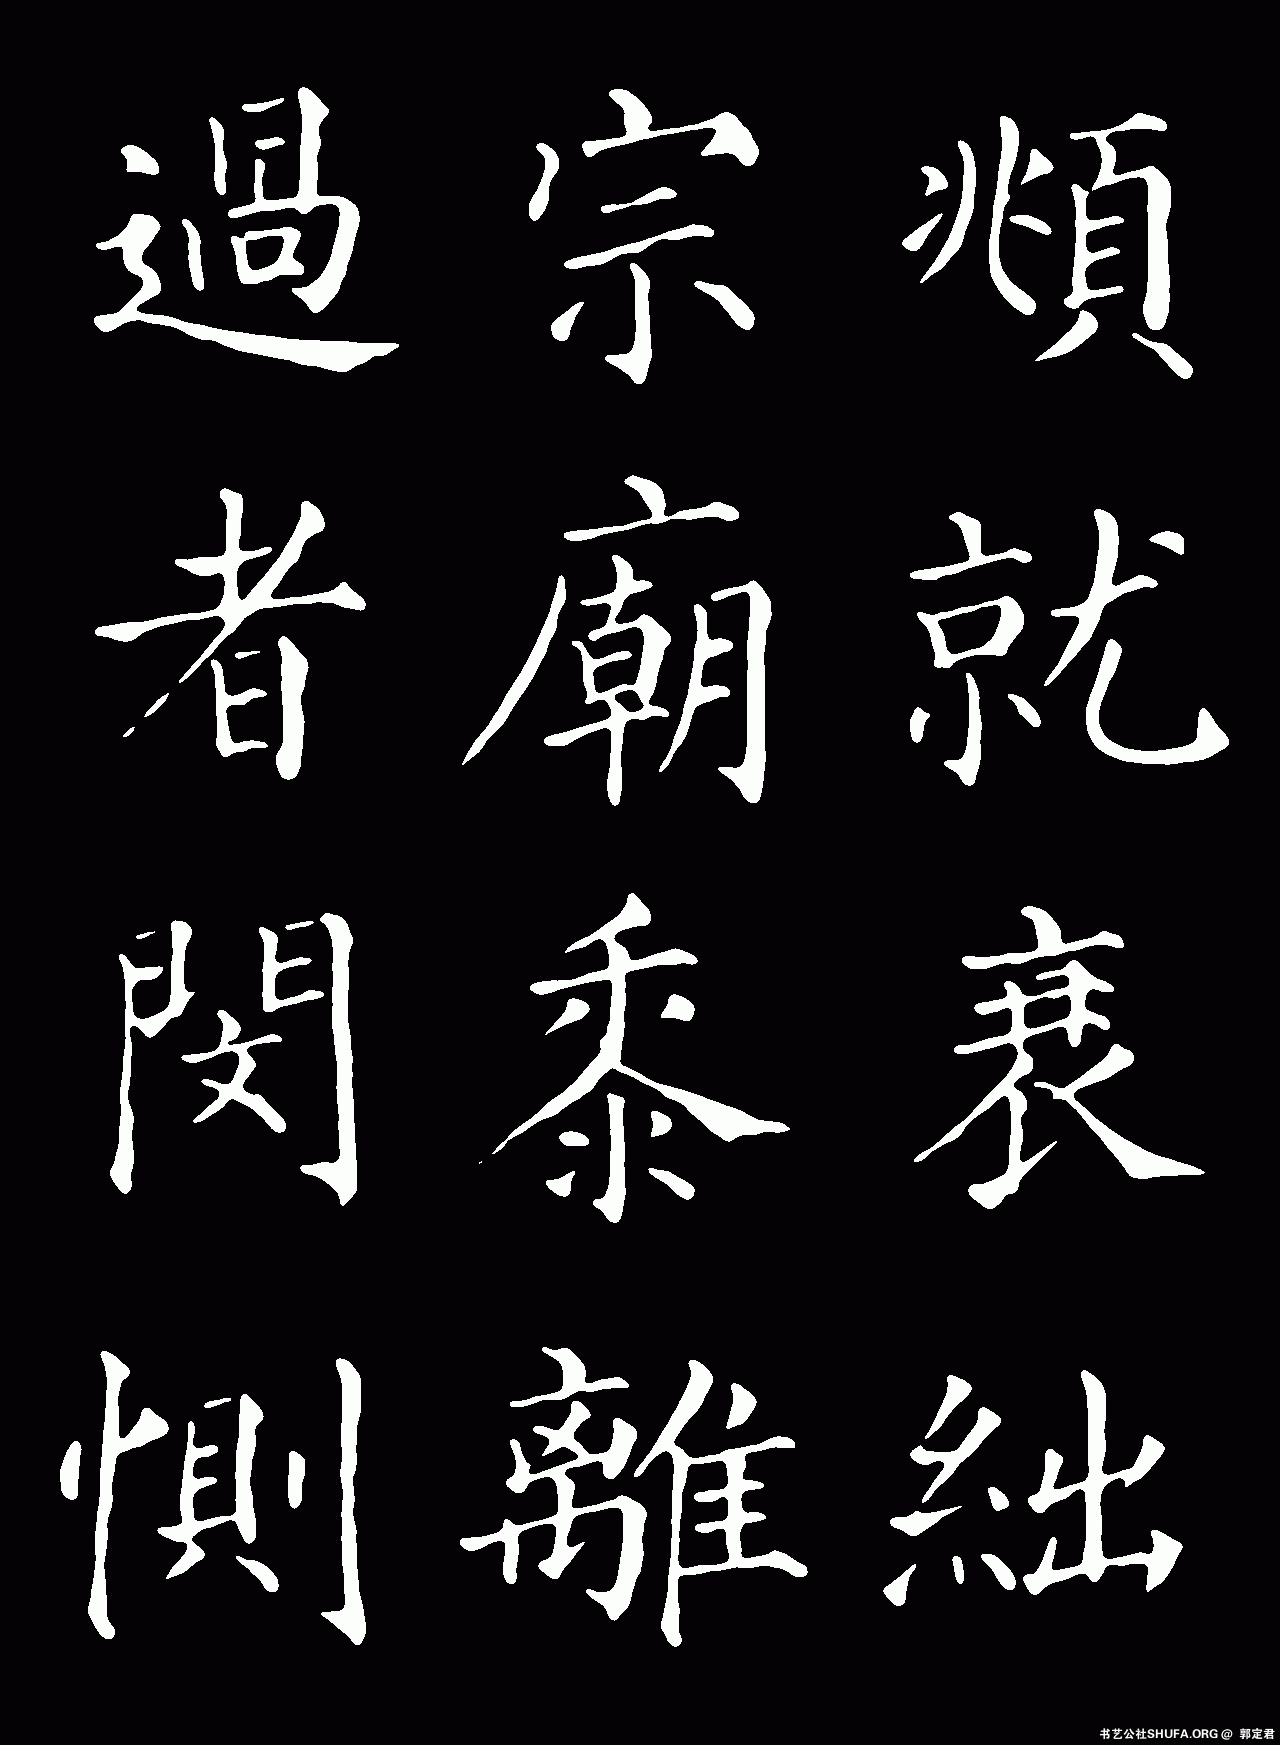 頫就衰絀
宗廟黍離
過者閔惻
书艺公社SHUFA.ORG @ 郭定君